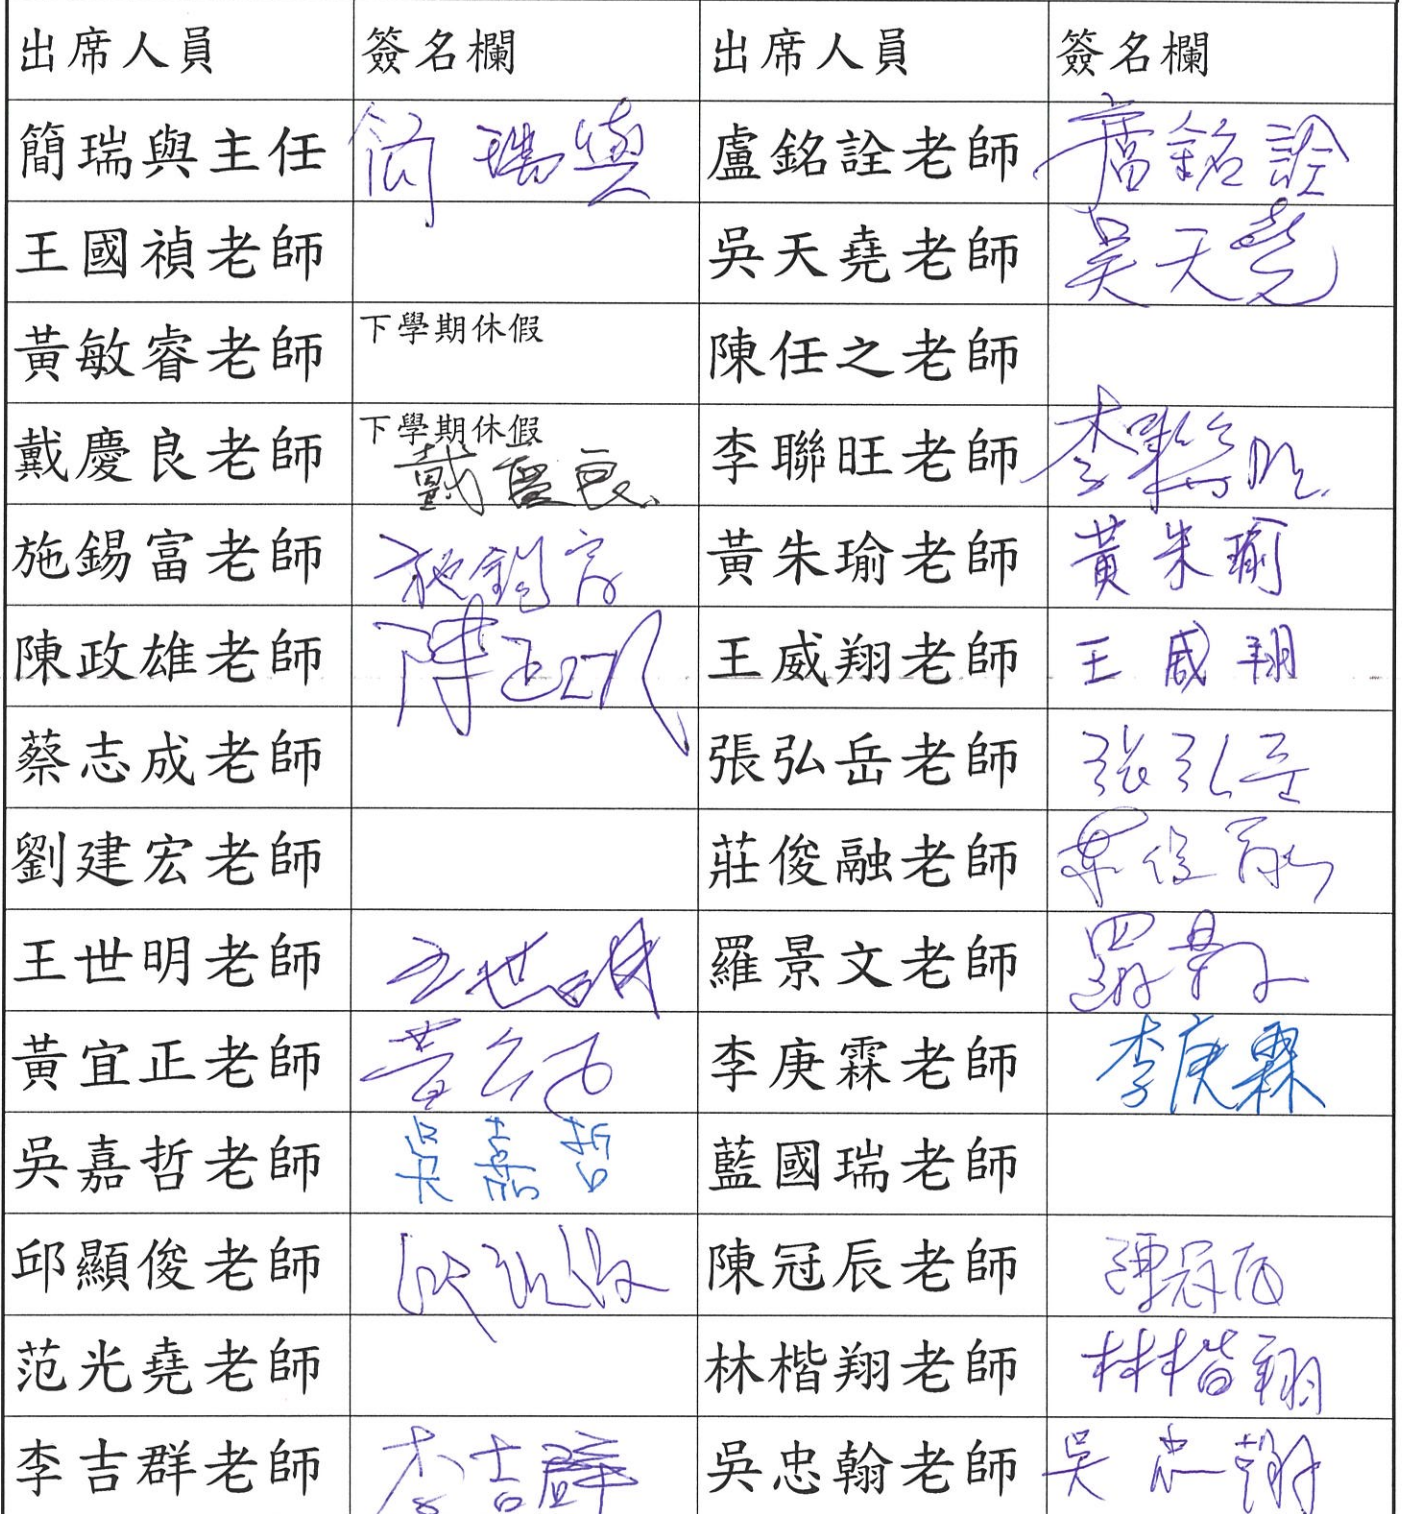 出席人員 簽名欄 出席人員 簽名欄
簡瑞與主任 簡瑞與 盧銘詮老師 盧銘詮
王國禎老師 吳天堯老師 吳天堯
黃敏睿老師 下學期休假 陳任之老師
戴慶良老師 下學期休假 戴慶良 李聯旺老師 李聯旺
施錫富老師 施錫富 黃朱瑜老師 黃朱瑜
陳政雄老師 陳政雄 王威翔老師 王威翔
蔡志成老師 張弘岳老師 張弘岳
劉建宏老師 莊俊融老師 莊俊融
王世明老師 王世明 羅景文老師 羅景文
黃宜正老師 黃宜正 李庚霖老師 李庚霖
吳嘉哲老師 吳嘉哲 藍國瑞老師
邱顯俊老師 邱顯俊 陳冠辰老師 陳冠辰
范光堯老師 林楷翔老師 林楷翔
李吉群老師 李吉群 吳忠翰老師 吳忠翰